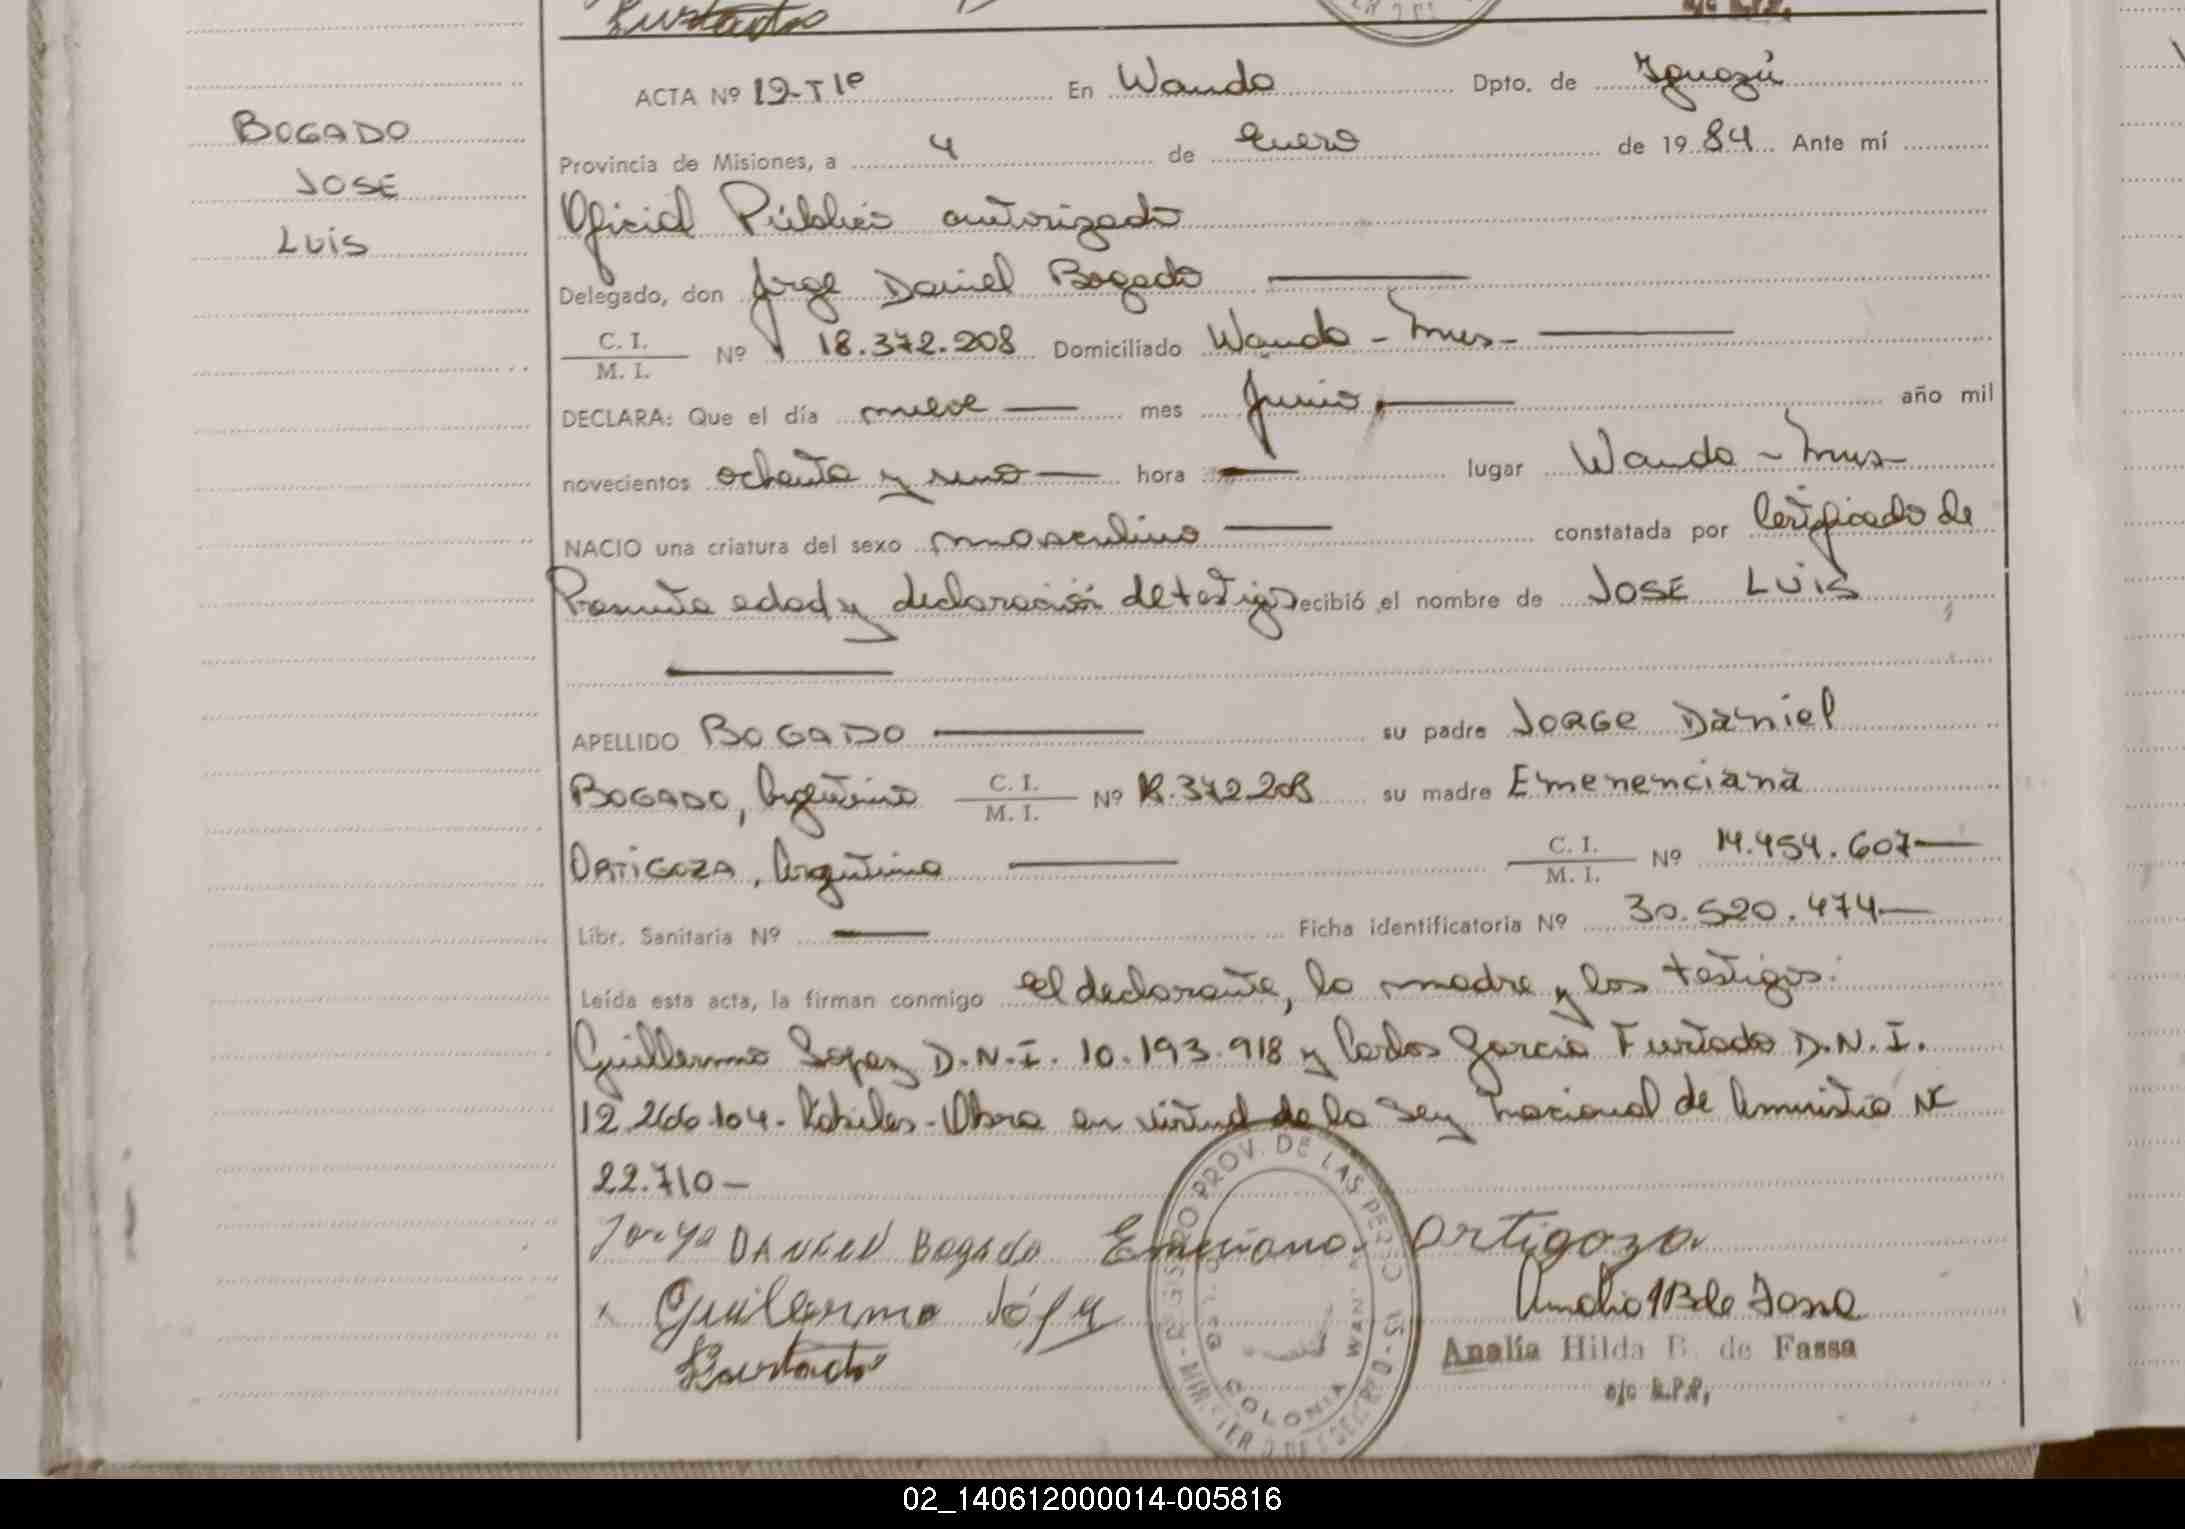 Furtado
BOGADO
JOSE
LUIS
ACTA Nº 12-T1º En Wanda Dpto. de Iguazú
Provincia de Misiones, a 4 de Enero de 1984 Ante mí
Oficial Público autorizado
Delegado, don Jorge Daniel Bogado
C. I.
M. I. Nº 18.372.208 Domiciliado Wanda - Mnes-
DECLARA: Que el día nueve mes Junio, año mil
novecientos ochenta y uno hora lugar Wanda - Mnes
NACIO una criatura del sexo masculino constatada por Certificado de
Presunta edad y declaración de testigos recibió el nombre de JOSE LUIS
APELLIDO BOGADO su padre JORGE DANIEL
BOGADO, Argentino C. I. M. I. Nº 18.372.208 su madre Emerenciana
ORTIGOZA, Argentina C. I. M. I. Nº 14.454.607
Libr. Sanitaria Nº Ficha identificatoria Nº 30.520.474
Leída esta acta, la firman conmigo el declarante, la madre y los testigos:
Guillermo Lopez D.N.I. 10.193.918 y Carlos Garcia Furtado D.N.I.
12.266.104. Hábiles-Obra en virtud de la Ley Nacional de Amnistia Nº
22.710-
Jorge DANIEL Bogado Ortigoza
Guilermo López
Furtado
Analía Hilda B. de Fassa
a/c R.P.P,
REGISTRO PROV. DE LAS PERSONAS
COLONIA WAN
02_140612000014-005816